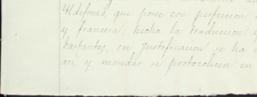 Ildefonso, que posee con perfeccion
y francesa, hecha la traduccion y
bastantes, en justificacion se ha
asi y mandar se protocolicen en